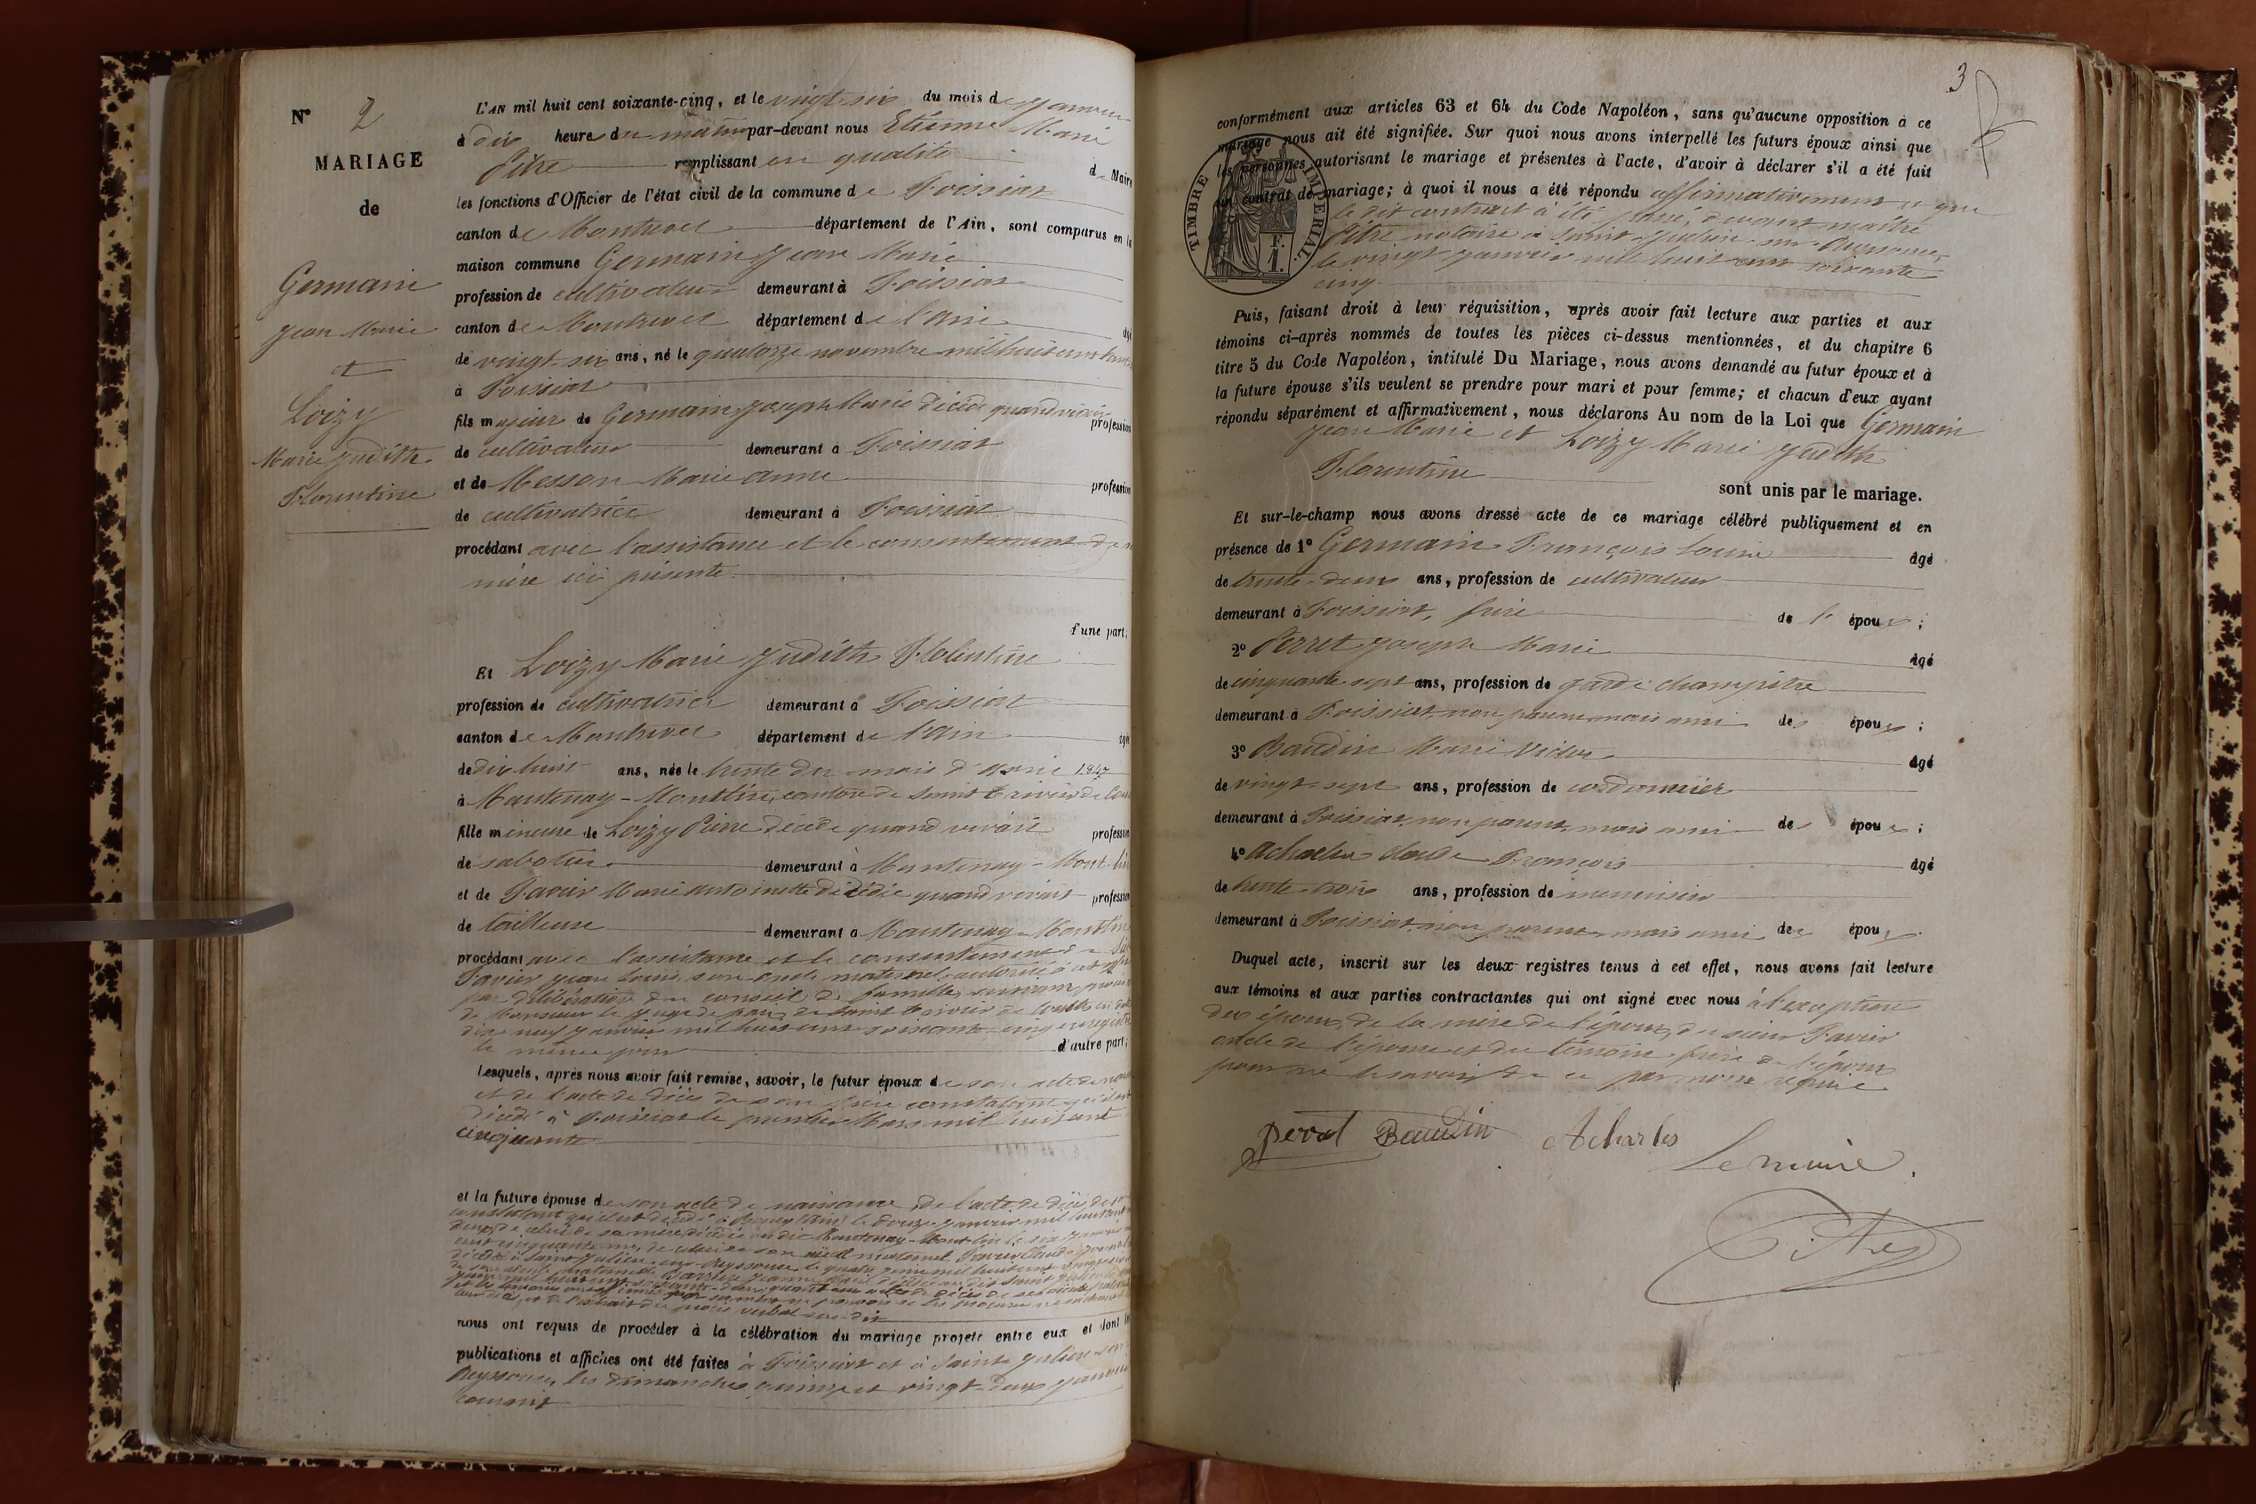 N° 2
MARIAGE
de
Germain
Jean Marie
et
Loizy
Marie Judith
Florentine
L'AN mil huit cent soixante-cinq, et le vingt-six du mois de Janvier
à dix heure du matin par-devant nous Etienne Marie
Pitre remplissant en qualité de Maire
les fonctions d'Officier de l'état civil de la commune de Foissiat
canton de Montrevel département de l'Ain, sont comparus en la
maison commune Germain Jean Marie
profession de cultivateur demeurant à Foissiat
canton de Montrevel département de l'Ain âgé
de vingt six ans, né le quatorze novembre mil huit cent
à Foissiat
fils majeur de Germain Joseph Marie décédé quand vivait profession
de cultivateur demeurant à Foissiat
et de Messon Marie anne profession
de cultivatrice demeurant à Foissiat
procédant avec l'assistance et le consentement de
mère ici présente
d'une part;
Et Loizy Marie Judith Florentine
profession de cultivatrice demeurant à Foissiat
canton de Montrevel département de l'Ain âgée
de dix huit ans, née le trente du mois d'
à Mantenay-Montlin, canton de Saint Trivier de
fille mineure de Loizy Pierre décédé quand vivait profession
de sabotier demeurant à Mantenay-Montlin
et de Pavier Marie antoinette décédée quand vivait profession
de tailleuse demeurant à Mantenay-Montlin
procédant avec l'assistance et le consentement de
Pavier Jean Louis, son oncle maternel, autorisé à cet
par délibération du conseil de famille
de Monsieur le juge de paix de Saint Trivier de Courtes en date
dix neuf janvier mil huit cent soixante-cinq enregistré
le même jour d'autre part;
Lesquels, après nous avoir fait remise, savoir, le futur époux de son acte de
et de l'acte de décès de son père constatant qu'il est
décédé à Foissiat le premier Mars mil huit cent
cinquante
et la future épouse de son acte de naissance, de l'acte de décès de
constatant qu'il est décédé à le douze janvier mil huit cent
de celui de sa mère décédée au dit Mantenay-Montlin le six janvier
cent cinquante de celui de son aïeul maternel Pavier Claude
décédé à Saint Julien-sur-Reyssouze le quatre
procès verbal sus-dit
nous ont requis de procéder à la célébration du mariage projeté entre eux et dont les
publications et affiches ont été faites à Foissiat et à Saint Julien-sur-
Reyssouze, les dimanches quinze et vingt-deux janvier
courant
3
conformément aux articles 63 et 64 du Code Napoléon, sans qu'aucune opposition à ce
mariage nous ait été signifiée. Sur quoi nous avons interpellé les futurs époux ainsi que
les personnes autorisant le mariage et présentes à l'acte, d'avoir à déclarer s'il a été fait
un contrat de mariage; à quoi il nous a été répondu affirmativement et que
le dit contrat a été passé devant maître
Pitre notaire à Saint-Julien-sur-Reyssouze,
le vingt janvier mil huit cent soixante
cinq
TIMBRE IMPÉRIAL
F.
1.
Puis, faisant droit à leur réquisition, après avoir fait lecture aux parties et aux
témoins ci-après nommés de toutes les pièces ci-dessus mentionnées, et du chapitre 6
titre 5 du Code Napoléon, intitulé Du Mariage, nous avons demandé au futur époux et à
la future épouse s'ils veulent se prendre pour mari et pour femme; et chacun d'eux ayant
répondu séparément et affirmativement, nous déclarons Au nom de la Loi que Germain
Jean Marie et Loizy Marie Judith
Florentine sont unis par le mariage.
Et sur-le-champ nous avons dressé acte de ce mariage célébré publiquement et en
présence de 1° Germain François Louis âgé
de trente-deux ans, profession de cultivateur
demeurant à Foissiat, frère de l'époux;
2° Perret Joseph Marie âgé
de cinquante-sept ans, profession de garde champêtre
demeurant à Foissiat, non parent mais ami des époux;
3° Baudin Marie Victor âgé
de vingt-sept ans, profession de cordonnier
demeurant à Foissiat, non parent, mais ami des époux;
4° acharles claude François âgé
de trente-trois ans, profession de menuisier
demeurant à Foissiat, non parent, mais ami des époux.
Duquel acte, inscrit sur les deux registres tenus à cet effet, nous avons fait lecture
aux témoins et aux parties contractantes qui ont signé avec nous à l'exception
des époux, de la mère de l'époux, du sieur Pavier
oncle de l'épouse et du témoin frère de l'époux
pour ne le savoir de ce par nous requis
Perret Baudin Acharles
Le maire,
Pitre